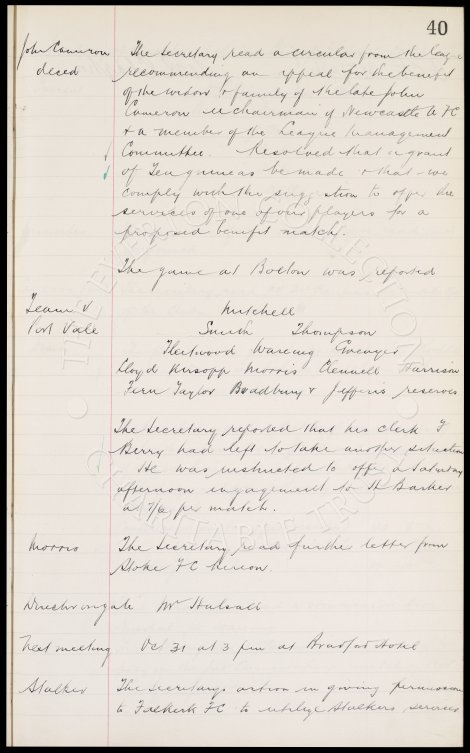 40
John Cameron The Secretary read a circular from the League
deced recommending an appeal for the benefit
of the widow & family of the late John
Cameron chairman of Newcastle U FC
& a member of the League Management
Committee. Resolved that a grant
of Ten guineas be made & that we
comply with the suggestion to offer the
services of one of our players for a
proposed benefit match.
The game at Bolton was reported
Team v Mitchell
Port Vale Smith Thompson
Fleetwood Wareing Grenyer
Lloyd Kirsopp Morris Clennell Harrison
Fern Taylor Bradbury & Jefferis reserves
The Secretary reported that his clerk F
Berry had left to take another situation
He was instructed to offer a Saturday
afternoon engagement to H Barker
at 7/6 per match.
Morris The Secretary read further letter from
Stoke FC hereon.
Director on gate Mr Halsall
Next meeting Oct 31 at 3 pm at Bradford Hotel
Stalker The Secretarys action in giving permission
to Falkirk FC to utilize Stalkers services
THE EVERTON COLLECTION
CHARITABLE TRUST